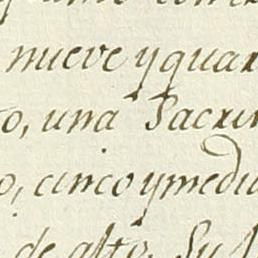 nueve y quar
to, una Sacri
o, cinco y medi
de alto. Su